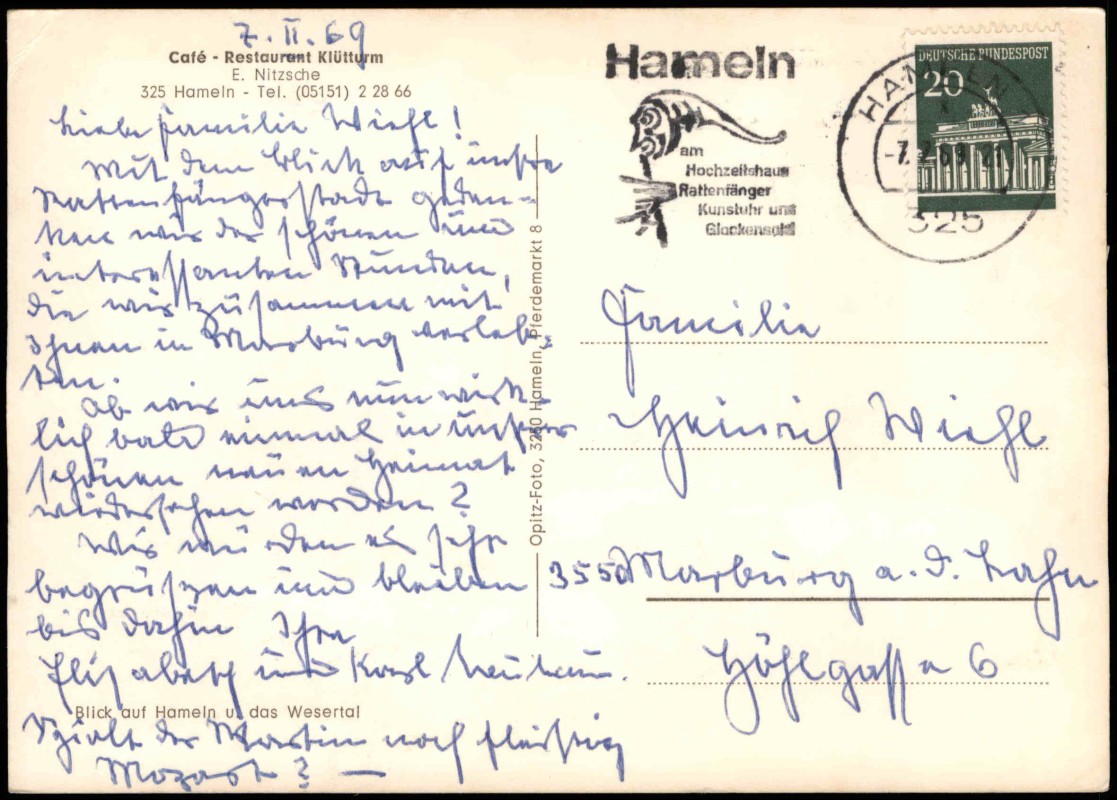 7. II. 69
Café - Restaurant Klütturm
E. Nitzsche
325 Hameln - Tel. (05151) 2 28 66
Liebe Familie Wiehl!
Mit dem Blick auf unsre
Rattenfängerstadt geden-
ken wir der schönen und
interessanten Stunden,
die wir zusammen mit
Ihnen in Marburg verleb-
ten.
Ob wir uns nun wirk-
lich bald einmal in unsrer
schönen neuen Heimat
wiedersehen werden?
Wir würden es sehr
begrüssen und bleiben
bis dahin Ihre
Elisabeth und Karl
Blick auf Hameln u. das Wesertal
Spielt der Martin noch fleissig
Mozart? —
Opitz-Foto, 3250 Hameln, Pferdemarkt 8
Hameln
am
Hochzeitshaus
Rattenfänger
Kunstuhr und
Glockenspiel
HAMELN
325
DEUTSCHE BUNDESPOST
20
Familie
Heinrich Wiehl
3550 Marburg a. d. Lahn
Höhlgasse 6